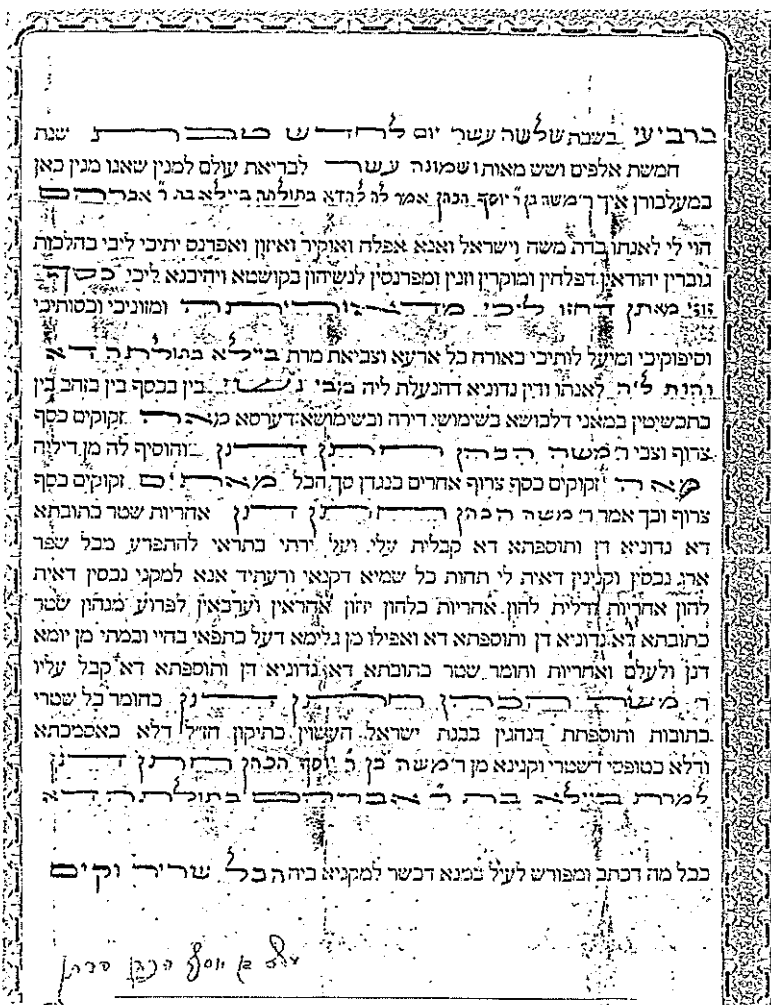 ברביעי בשבת שלשה עשר יום לחדש טבת שנת
חמשת אלפים ושש מאות ושמונה עשר לבריאת עולם למנין שאנו מנין כאן
במעלבורן איך ר׳ משה בן ר׳ יוסף הכהן אמר לה להדא בתולתה ביילא בת ר׳ אברהם
הוי לי לאנתו כדת משה וישראל ואנא אפלח ואוקיר ואיזון ואפרנס יתיכי ליכי כהלכות
גוברין יהודאין דפלחין ומוקרין וזנין ומפרנסין לנשיהון בקושטא ויהיבנא ליכי כסף
זוזי מאתן דחזו ליכי מדאורייתא ומזוניכי וכסותיכי
וסיפוקיכי ומיעל לותיכי כאורח כל ארעא וצביאת מרת ביילא בתולתה דא
והות ליה לאנתו ודין נדוניא דהנעלת ליה מבי נשא בין בכסף בין בזהב בין
בתכשיטין במאני דלבושא בשימושי דירה ובשימושא דערסא מאה זקוקים כסף
צרוף וצבי ר׳ משה הכהן חתן דנן והוסיף לה מן דיליה
מאה זקוקים כסף צרוף אחרים כנגדן סך הכל מאתים זקוקים כסף
צרוף וכך אמר ר׳ משה הכהן חתן דנן אחריות שטר כתובתא
דא נדוניא דן ותוספתא דא קבלית עלי ועל ירתי בתראי להתפרע מכל שפר
ארג נכסין וקנינין דאית לי תחות כל שמיא דקנאי ודעתיד אנא למקני נכסין דאית
להון אחריות ודלית להון אחריות כלהון יהון אחראין וערבאין לפרוע מנהון שטר
כתובתא דא נדוניא דן ותוספתא דא ואפילו מן גלימא דעל כתפאי בחיי ובמתי מן יומא
דנן ולעלם ואחריות וחומר שטר כתובתא דא נדוניא דן ותוספתא דא קבל עליו
ר׳ משה הכהן חתן דנן כחומר כל שטרי
כתובות ותוספתת דנהגין בבנת ישראל העשוין כתיקון חז״ל דלא כאסמכתא
ודלא כטופסי דשטרי וקנינא מן ר׳ משה בן ר׳ יוסף הכהן חתן דנן
למרת ביילא בת ר׳ אברהם בתולתה דא
ככל מה דכתב ומפורש לעיל במנא דכשר למקניא ביה הכל שריר וקים
משה בן יוסף הכהן חתן